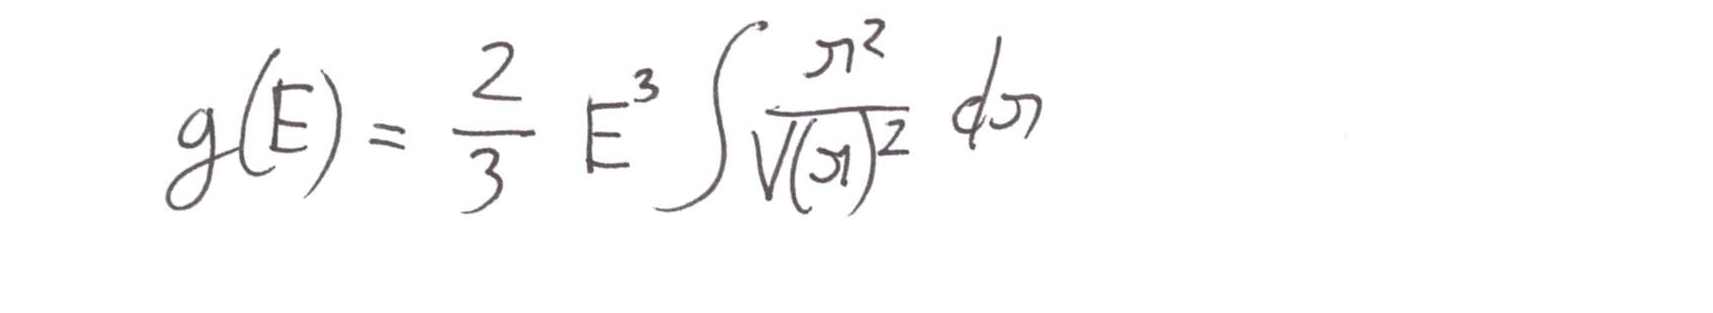 g(E) = \frac{2}{3} E^3 \int \frac{r^2}{V(r)^2} dr